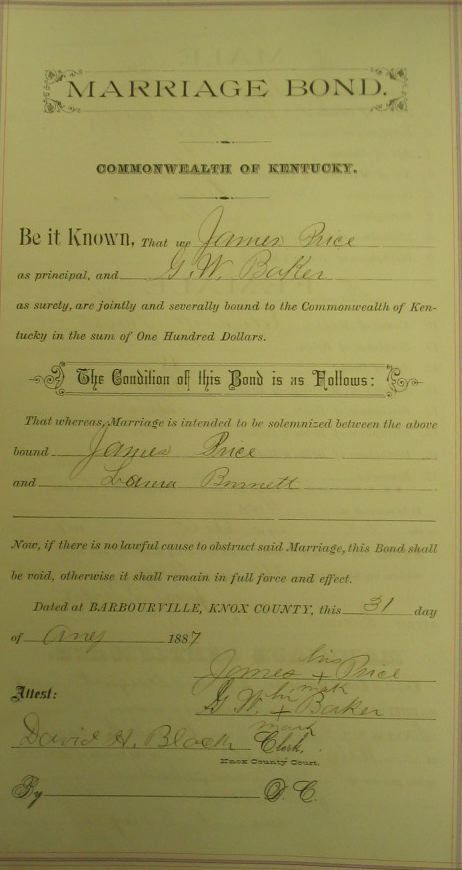 MARRIAGE BOND.
COMMONWEALTH OF KENTUCKY.
Be it Known, That we James Price
as principal, and G. W. Baker
as surety, are jointly and severally bound to the Commonwealth of Ken-
tucky in the sum of One Hundred Dollars.
The Condition of this Bond is as Follows:
That whereas, Marriage is intended to be solemnized between the above
bound James Price
and Laura Burnett
Now, if there is no lawful cause to obstruct said Marriage, this Bond shall
be void, otherwise it shall remain in full force and effect.
Dated at BARBOURVILLE, KNOX COUNTY, this 31 day
of Aug 1887
his
James + Price
mark
his
G. W. + Baker
mark
Attest:
David H. Clerk.
Knox County Court.
By D. C.